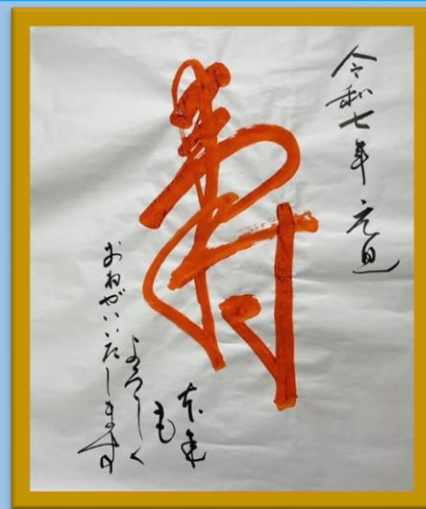 令和七年 元旦
寿
本年
も
よろしく
おねがいいたします